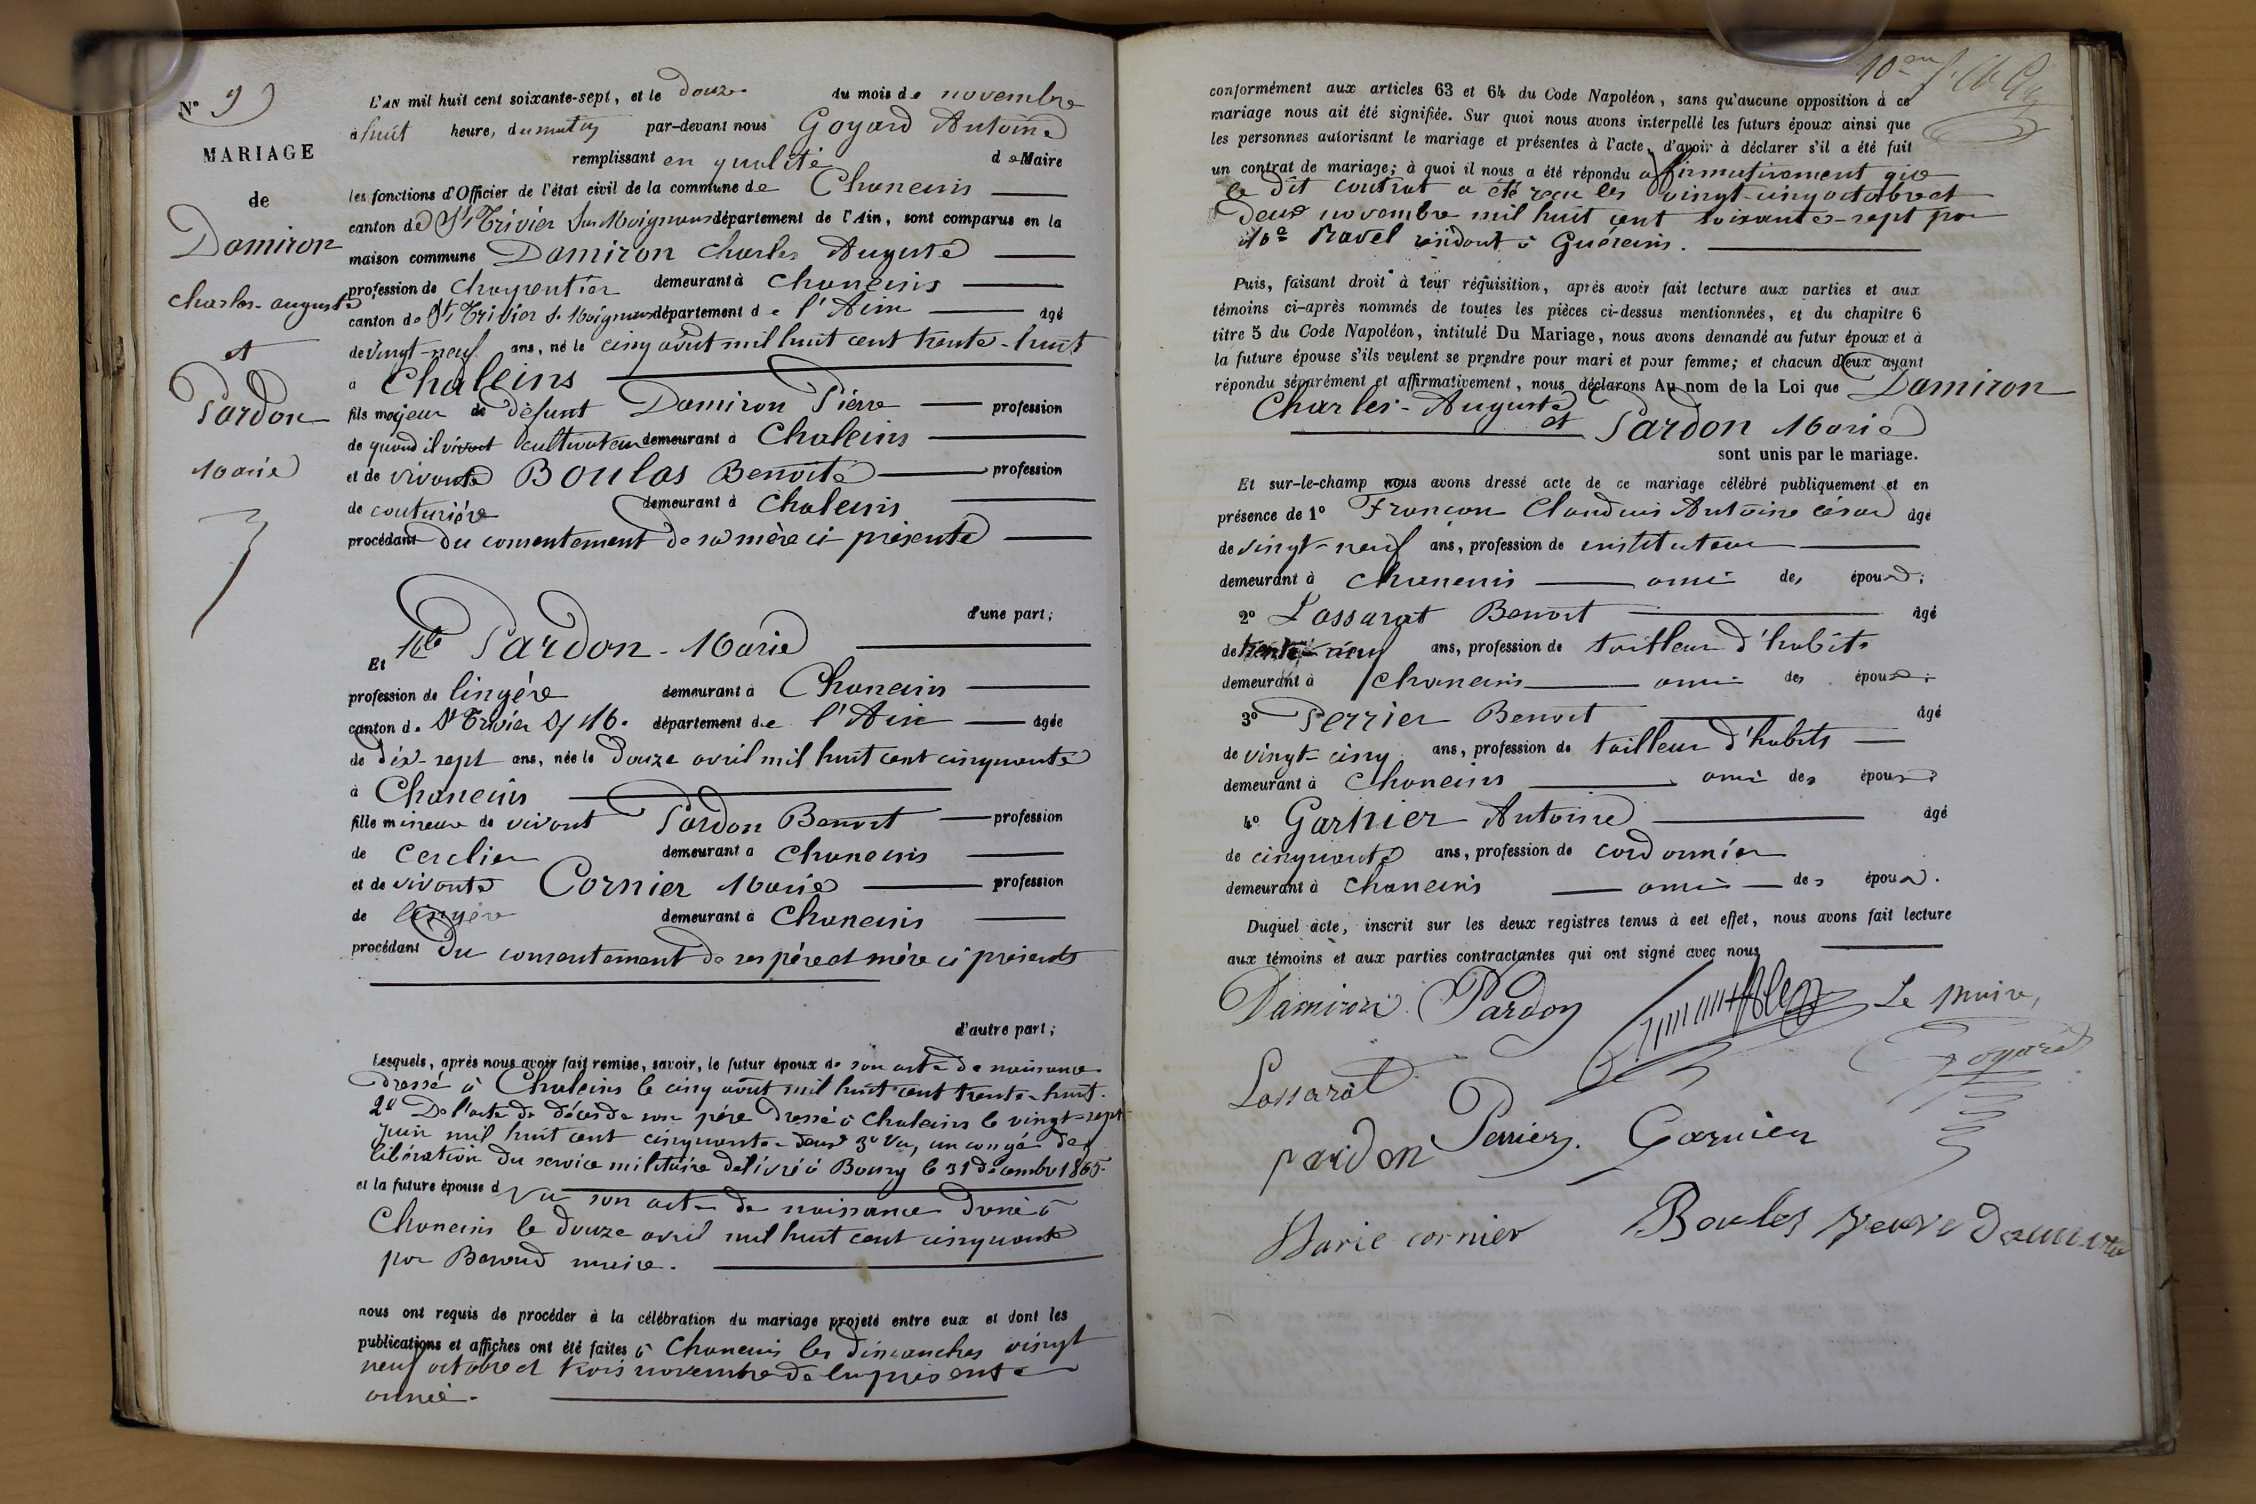 N° 9
MARIAGE
de
Damiron
Charles-Auguste
et
Pardon
Marie
L'AN mil huit cent soixante-sept, et le douze du mois de novembre
à huit heure, du matin par-devant nous Goyard Antoine
remplissant en qualité de Maire
les fonctions d'Officier de l'état civil de la commune de Chaneins
canton de St Trivier sur Moignans département de l'Ain, sont comparus en la
maison commune Damiron Charles Auguste
profession de charpentier demeurant à Chaneins
canton de St Trivier s. Moignans département de l'Ain âgé
de vingt-neuf ans, né le cinq août mil huit cent trente-huit
à Chaleins
fils majeur de défunt Damiron Pierre profession
de quand il vivait cultivateur demeurant à Chaleins
et de vivante Boulas Benoite profession
de couturière demeurant à Chaleins
procédant du consentement de sa mère ci présente
d'une part;
Et Mlle Pardon Marie
profession de lingère demeurant à Chaneins
canton de St Trivier s/ M. département de l'Ain âgée
de dix-sept ans, née le douze avril mil huit cent cinquante
à Chaneins
fille mineure de vivant Pardon Benoit profession
de cerclier demeurant à Chaneins
et de vivante Cornier Marie profession
de lingère demeurant à Chaneins
procédant du consentement de ses père et mère ci présents
d'autre part;
Lesquels, après nous avoir fait remise, savoir, le futur époux de son acte de naissance
dressé à Chaleins le cinq août mil huit cent trente-huit.
2° De l'acte de décès de son père dressé à Chaleins le vingt-sept
juin mil huit cent cinquante-deux 3° Vu, un congé de
libération du service militaire délivré à Bourg le 31 décembre 1865.
et la future épouse d Vu son acte de naissance dressé à
Chaneins le douze avril mil huit cent cinquante
par Baroud maire.
nous ont requis de procéder à la célébration du mariage projeté entre eux et dont les
publications et affiches ont été faites à Chaneins les dimanches vingt
neuf octobre et trois novembre de la présente
année.
conformément aux articles 63 et 64 du Code Napoléon, sans qu'aucune opposition à ce
mariage nous ait été signifiée. Sur quoi nous avons interpellé les futurs époux ainsi que
les personnes autorisant le mariage et présentes à l'acte, d'avoir à déclarer s'il a été fait
un contrat de mariage; à quoi il nous a été répondu affirmativement que
le dit contrat a été reçu les vingt-cinq octobre et
deux novembre mil huit cent soixante-sept par
Me Ravel résidant à Guéreins.
Puis, faisant droit à leur réquisition, après avoir fait lecture aux parties et aux
témoins ci-après nommés de toutes les pièces ci-dessus mentionnées, et du chapitre 6
titre 5 du Code Napoléon, intitulé Du Mariage, nous avons demandé au futur époux et à
la future épouse s'ils veulent se prendre pour mari et pour femme; et chacun d'eux ayant
répondu séparément et affirmativement, nous déclarons Au nom de la Loi que Damiron
Charles-Auguste
et Pardon Marie
sont unis par le mariage.
Et sur-le-champ nous avons dressé acte de ce mariage célébré publiquement et en
présence de 1° Françon Claudius Antoine César âgé
de vingt-neuf ans, profession de instituteur
demeurant à Chaneins ami des époux;
2° Lassarat Benoit âgé
de trente-neuf ans, profession de tailleur d'habits
demeurant à Chaneins ami des époux;
3° Perrier Benoit âgé
de vingt-cinq ans, profession de tailleur d'habits
demeurant à Chaneins ami des époux;
4° Garnier Antoine âgé
de cinquante ans, profession de cordonnier
demeurant à Chaneins ami des époux.
Duquel acte, inscrit sur les deux registres tenus à cet effet, nous avons fait lecture
aux témoins et aux parties contractantes qui ont signé avec nous
Damiron Pardon Le Maire,
Goyard
Lassarat
pardon Perrier. Garnier
Marie cornier Boulas veuve Damiron